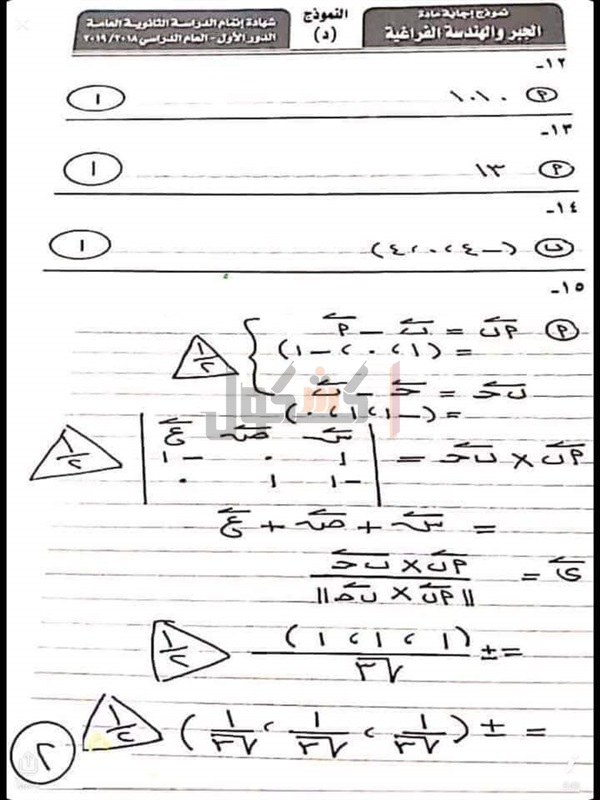 نموذج إجابة مادة
الجبر والهندسة الفراغية
النموذج
(د)
شهادة إتمام الدراسة الثانوية العامة
الدور الأول - العام الدراسي ٢٠١٩/٢٠١٨
١٢-
(P) ١٠١٠ (١)
١٣-
(P) ١٣ (١)
١٤-
(ب) (-٤، ٠، ٤) (١)
١٥-
(P) P⃗ب = ب⃗ - P⃗
= (١، ٠، -١) ١/٢
ب⃗ح = ح⃗ - ب⃗
= (-١، ١، ٠)
كشكول
س⃗ ص⃗ ع⃗
P⃗ب × ب⃗ح = | ١ ٠ -١ | ١/٢
-١ ١ ٠
= س⃗ + ص⃗ + ع⃗
ى⃗ = P⃗ب × ب⃗ح / ||P⃗ب × ب⃗ح||
= ± (١، ١، ١) / √٣ ١/٢
= ± (١/√٣، ١/√٣، ١/√٣) ١/٢ (٢)